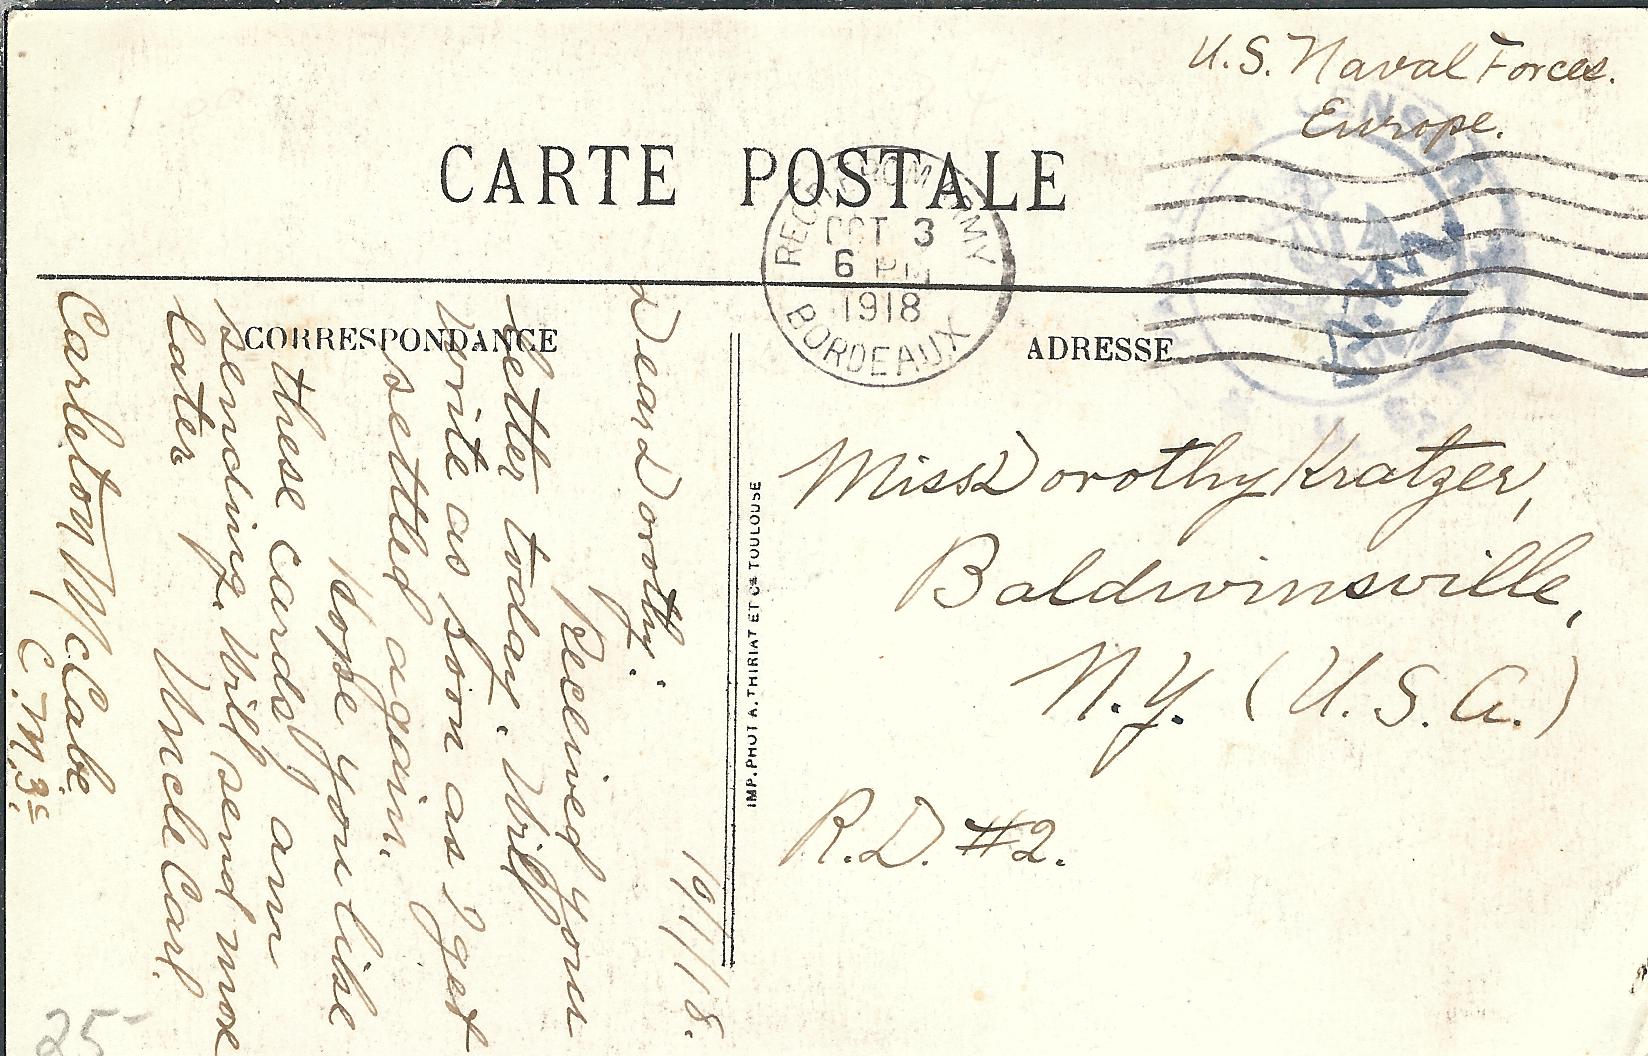 U.S. Naval Forces.
Europe.
CARTE POSTALE
OCT 3
6 PM
1918
BORDEAUX
CENSOR
CORRESPONDANCE
ADRESSE
10/1/18.
Dear Dorothy:
Received your
letter today. Will
write as soon as I get
settled again.
Hope you like
these cards I am
sending. Will send more
later Uncle Carl.
Carleton McCabe
C.M.3c
IMP. PHOT A. THIRIAT ET Cie TOULOUSE
Miss Dorothy Kratzer,
Baldwinsville,
N.Y. (U.S.A.)
R.D. #2.
25-